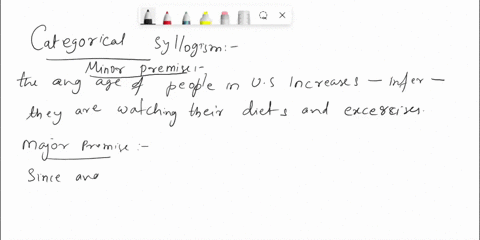 Categorical Syllogism:-
Minor premise:-
the avg age of people in U.S Increases - Infer -
they are watching their diets and excersises.
Major Premise :-
Since avg